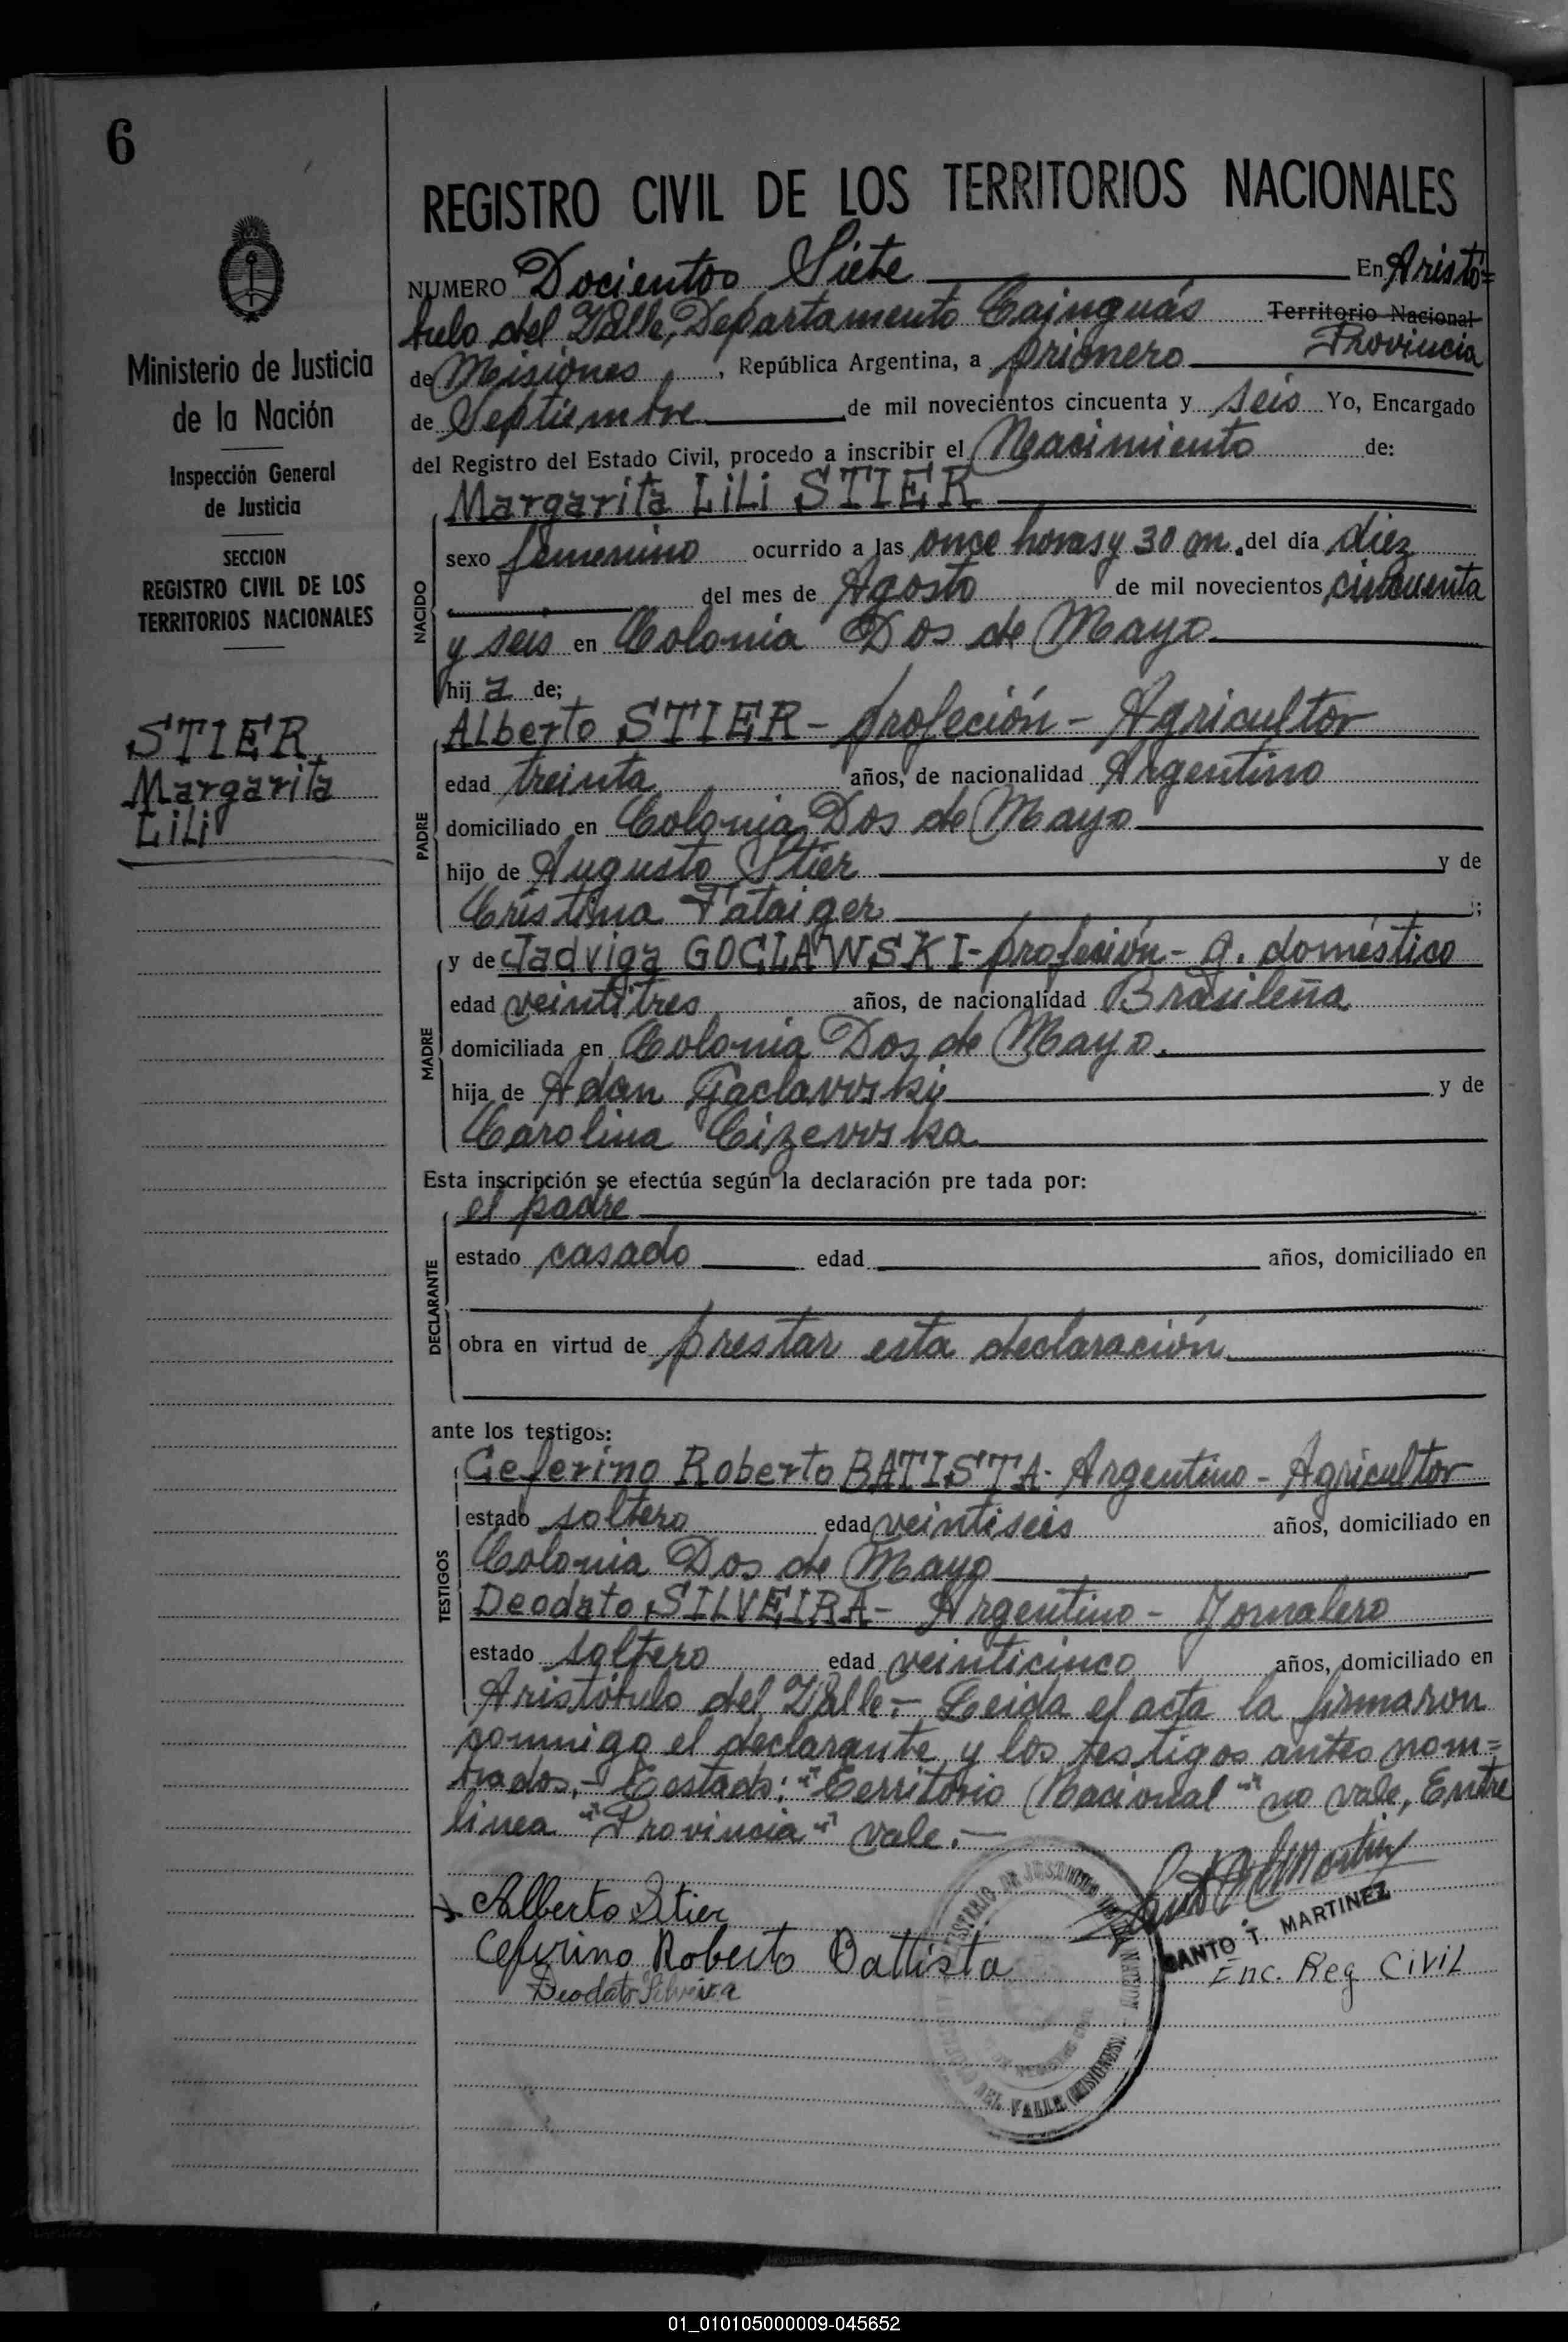 6
Ministerio de Justicia
de la Nación
Inspección General
de Justicia
SECCION
REGISTRO CIVIL DE LOS
TERRITORIOS NACIONALES
STIER
Margarita
Lili
REGISTRO CIVIL DE LOS TERRITORIOS NACIONALES
NUMERO Docientos Siete En Aristó=
bulo del Valle, Departamento Cainguás Territorio Nacional
Provincia
de Misiones, República Argentina, a primero
de Septiembre de mil novecientos cincuenta y seis Yo, Encargado
del Registro del Estado Civil, procedo a inscribir el Nacimiento de:
Margarita Lili STIER
NACIDO
sexo femenino ocurrido a las once horas y 30 m. del día diez
del mes de Agosto de mil novecientos cincuenta
y seis en Colonia Dos de Mayo
hija de;
PADRE
Alberto STIER - profeción - Agricultor
edad treinta años, de nacionalidad Argentino
domiciliado en Colonia Dos de Mayo
hijo de Augusto Stier y de
Cristina Fataiger ;
MADRE
y de Jadviga GOCLAWSKI - profeción - q. doméstico
edad veintitres años, de nacionalidad Brasileña
domiciliada en Colonia Dos de Mayo.
hija de Adan Gaclavvski y de
Carolina Cizevvska
Esta inscripción se efectúa según la declaración pre tada por:
DECLARANTE
el padre
estado casado edad años, domiciliado en
obra en virtud de prestar esta declaración
ante los testigos:
TESTIGOS
Ceferino Roberto BATISTA - Argentino - Agricultor
estado soltero edad veintiseis años, domiciliado en
Colonia Dos de Mayo
Deodato SILVEIRA - Argentino - Jornalero
estado soltero edad veinticinco años, domiciliado en
Aristóbulo del Valle.- Leida el acta la firmaron
conmigo el declarante y los testigos antes nom=
brados.- Testado: "Territorio Nacional" no vale, Entre
linea "Provincia" vale.-
Alberto Stier
Ceferino Roberto Battista
Deodato Silveira
SANTO T. MARTINEZ
Enc. Reg Civil
MINISTERIO DE JUSTICIA DE LA NACION
DEL VALLE (MISIONES)
01_010105000009-045652